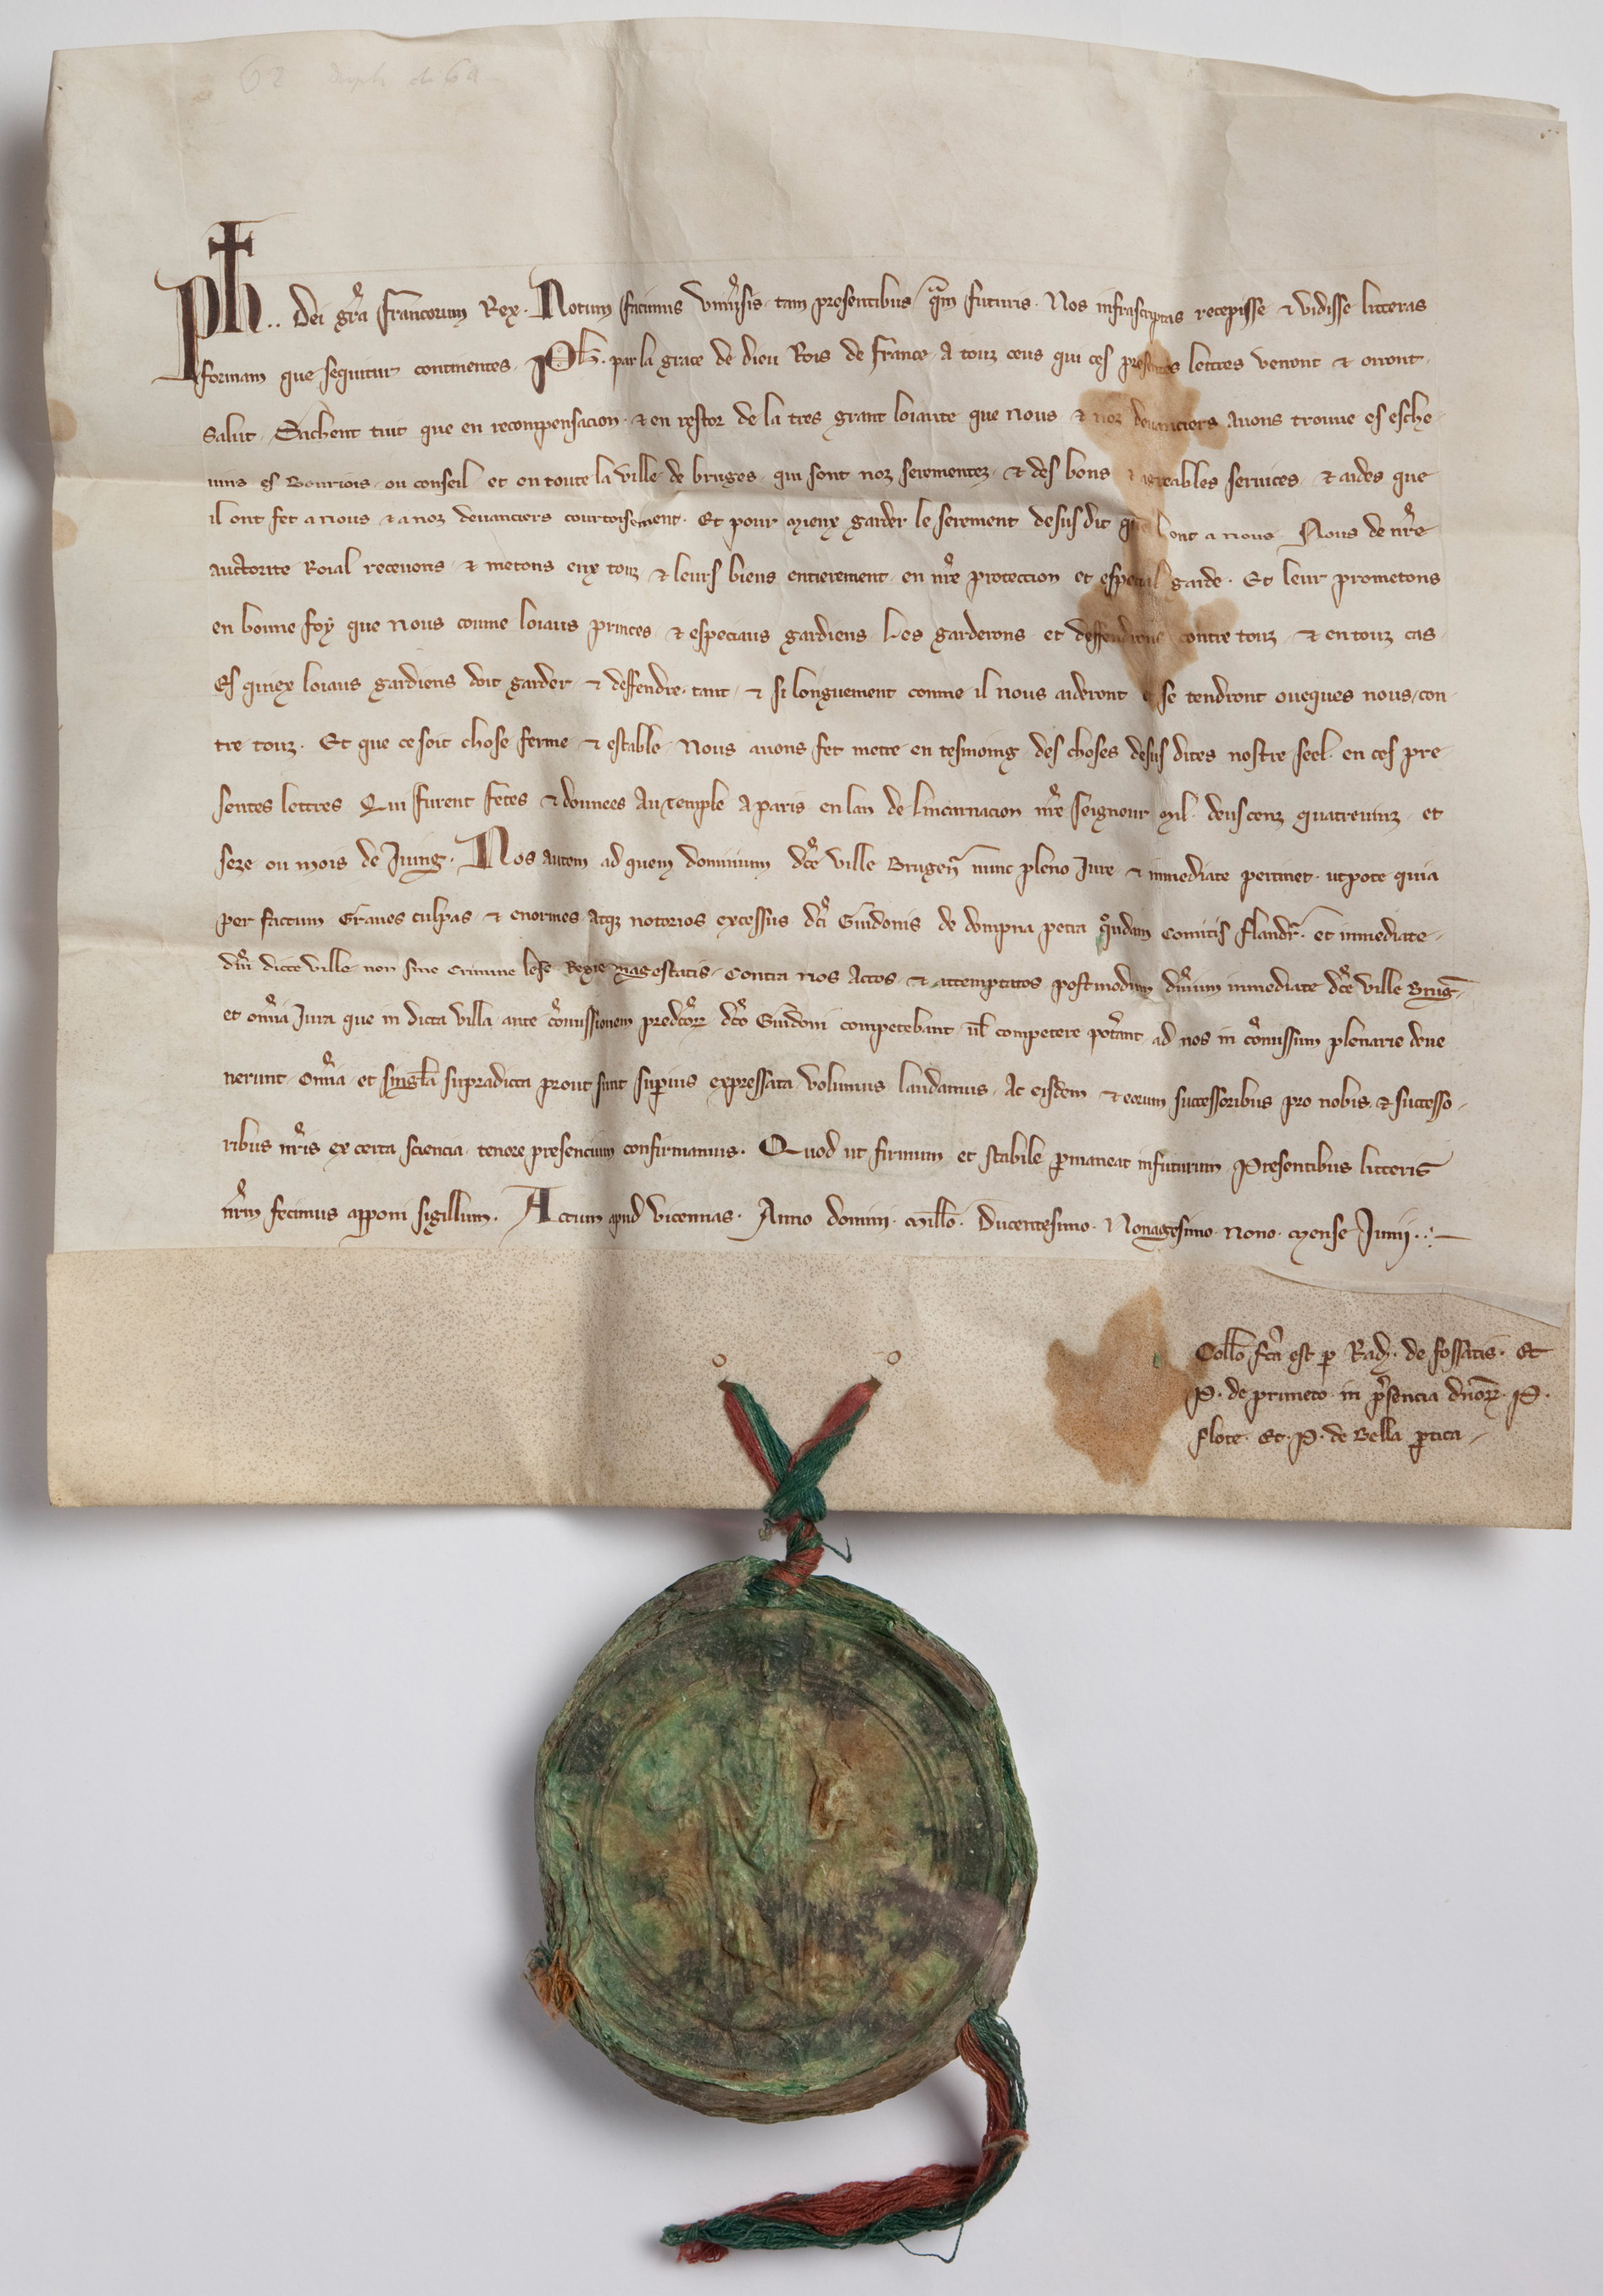 Ph .. Dei gr̄a francorum Rex. Notum facimus vniūsis tam presentibus q̄m futuris. Nos infrascriptas recepisse & vidisse litteras
formam que sequitur continentes. Ph. par la grace de dieu Rois de france. A touz ceus qui ces presentes lettres verront & orront.
Salut. Sachent tuit que en recompensacion. & en restor de la tres grant loiaute que nous & noz deuanciers auons trouue es esche
uins es Bouriois. ou conseil et en toute la ville de bruges. qui sont noz serementez. & des bons & agreables seruices. & aides que
il ont fet a nous & a noz deuanciers courtoisement. Et pour mieux garder le serement desus dit que il ont a nous. Nous de nr̄e
auctorite Roial receuons. & metons eux touz & leurs biens entierement. en nr̄e protection et especial garde. Et leur prometons
en bonne foy que nous comme loiaus princes. & especiaus gardiens. Les garderons et deffendrons contre touz. & en touz cas.
Es quiex loiaus gardiens doit garder. & deffendre. tant. & si longuement comme il nous aideront & se tendront oueques nous. con
tre touz. Et que ce soit chose ferme & estable. Nous auons fet metre en tesmoing des choses desus dites nostre seel. en ces pre
sentes lettres Qui furent fetes & donnees Au Temple a paris en lan de lincarnacion nr̄e seigneur mil. deus cenz quatreuinz et
seze ou mois de Juing. Nos autem ad quem dominium dc̄e ville Brugen̄ nunc pleno Jure & inmediate pertinet. utpote quia
per factum Graues culpas & enormes. Atqz notorios excessus dc̄i Guidonis de dompna petra q̄ndam Comitis flandr̄. et inmediate
dn̄i dicte ville non sine crimine lese Regie magestatis. Contra nos Actos. & attemptatos postmodum dn̄ium inmediate dc̄e ville Bruḡ.
et om̄ia Jura que in dicta villa ante cōmissionem predc̄orꝝ dc̄o Guidoni competebant. ul̄ competere pot̄ant ad nos in cōmissum plenarie deue
nerunt. Om̄ia et singl̄a supradicta prout sunt sup̄ius expressata volumus laudamus. Ac eisdem & eorum successoribus pro nobis. & successo
ribus nr̄is ex certa sciencia. tenore presencium confirmamus. Quod ut firmum et stabile p̄maneat infuturum. Presentibus litteris
nr̄m fecimus apponi sigillum. Actum apud vicennas. Anno domini. mill̄o. Ducentesimo. Nonagesimo. Nono. mense Junij.
Coll̄o fc̄a est p̄ Rad̄. de fossatis. Et
P. de pruneto. in p̄sencia dn̄orꝝ. P.
flote. Et. P. de Bella p̄tica